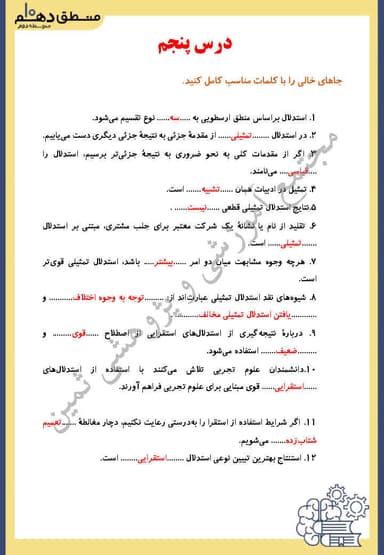 منطق دهم
متوسطه دوم
درس پنجم
جاهای خالی را با کلمات مناسب کامل کنید.
۱. استدلال براساس منطق ارسطویی به .....سه...... نوع تقسیم می‌شود.
۲. در استدلال .........تمثیلی...... از مقدمهٔ جزئی به نتیجهٔ جزئی دیگری دست می‌یابیم.
۳. اگر از مقدمات کلی به نحو ضروری به نتیجهٔ جزئی‌تر برسیم، استدلال را
....قیاسی.... می‌نامند.
۴. تمثیل در ادبیات همان ......تشبیه....... است.
۵.نتایج استدلال تمثیلی قطعی ......نیست...... .
۶. تقلید از نام یا نشانهٔ یک شرکت معتبر برای جلب مشتری، مبتنی بر استدلال
.......تمثیلی...... است.
۷. هرچه وجوه مشابهت میان دو امر ......بیشتر..... باشد، استدلال تمثیلی قوی‌تر
است.
۸. شیوه‌های نقد استدلال تمثیلی عبارت‌اند از: .........توجه به وجوه اختلاف........... و
...........یافتن استدلال تمثیلی مخالف.......... .
۹. دربارهٔ نتیجه‌گیری از استدلال‌های استقرایی از اصطلاح ......قوی.......... و
.........ضعیف........ استفاده می‌شود.
۱۰.دانشمندان علوم تجربی تلاش می‌کنند با استفاده از استدلال‌های
.......استقرایی...... قوی مبنایی برای علوم تجربی فراهم آورند.
۱۱. اگر شرایط استفاده از استقرا را به‌درستی رعایت نکنیم، دچار مغالطهٔ .......تعمیم
شتاب‌زده....... می‌شویم.
۱۲. استنتاج بهترین تبیین نوعی استدلال ........استقرایی......... است.
مجتمع آموزشی و پژوهشی ثمین